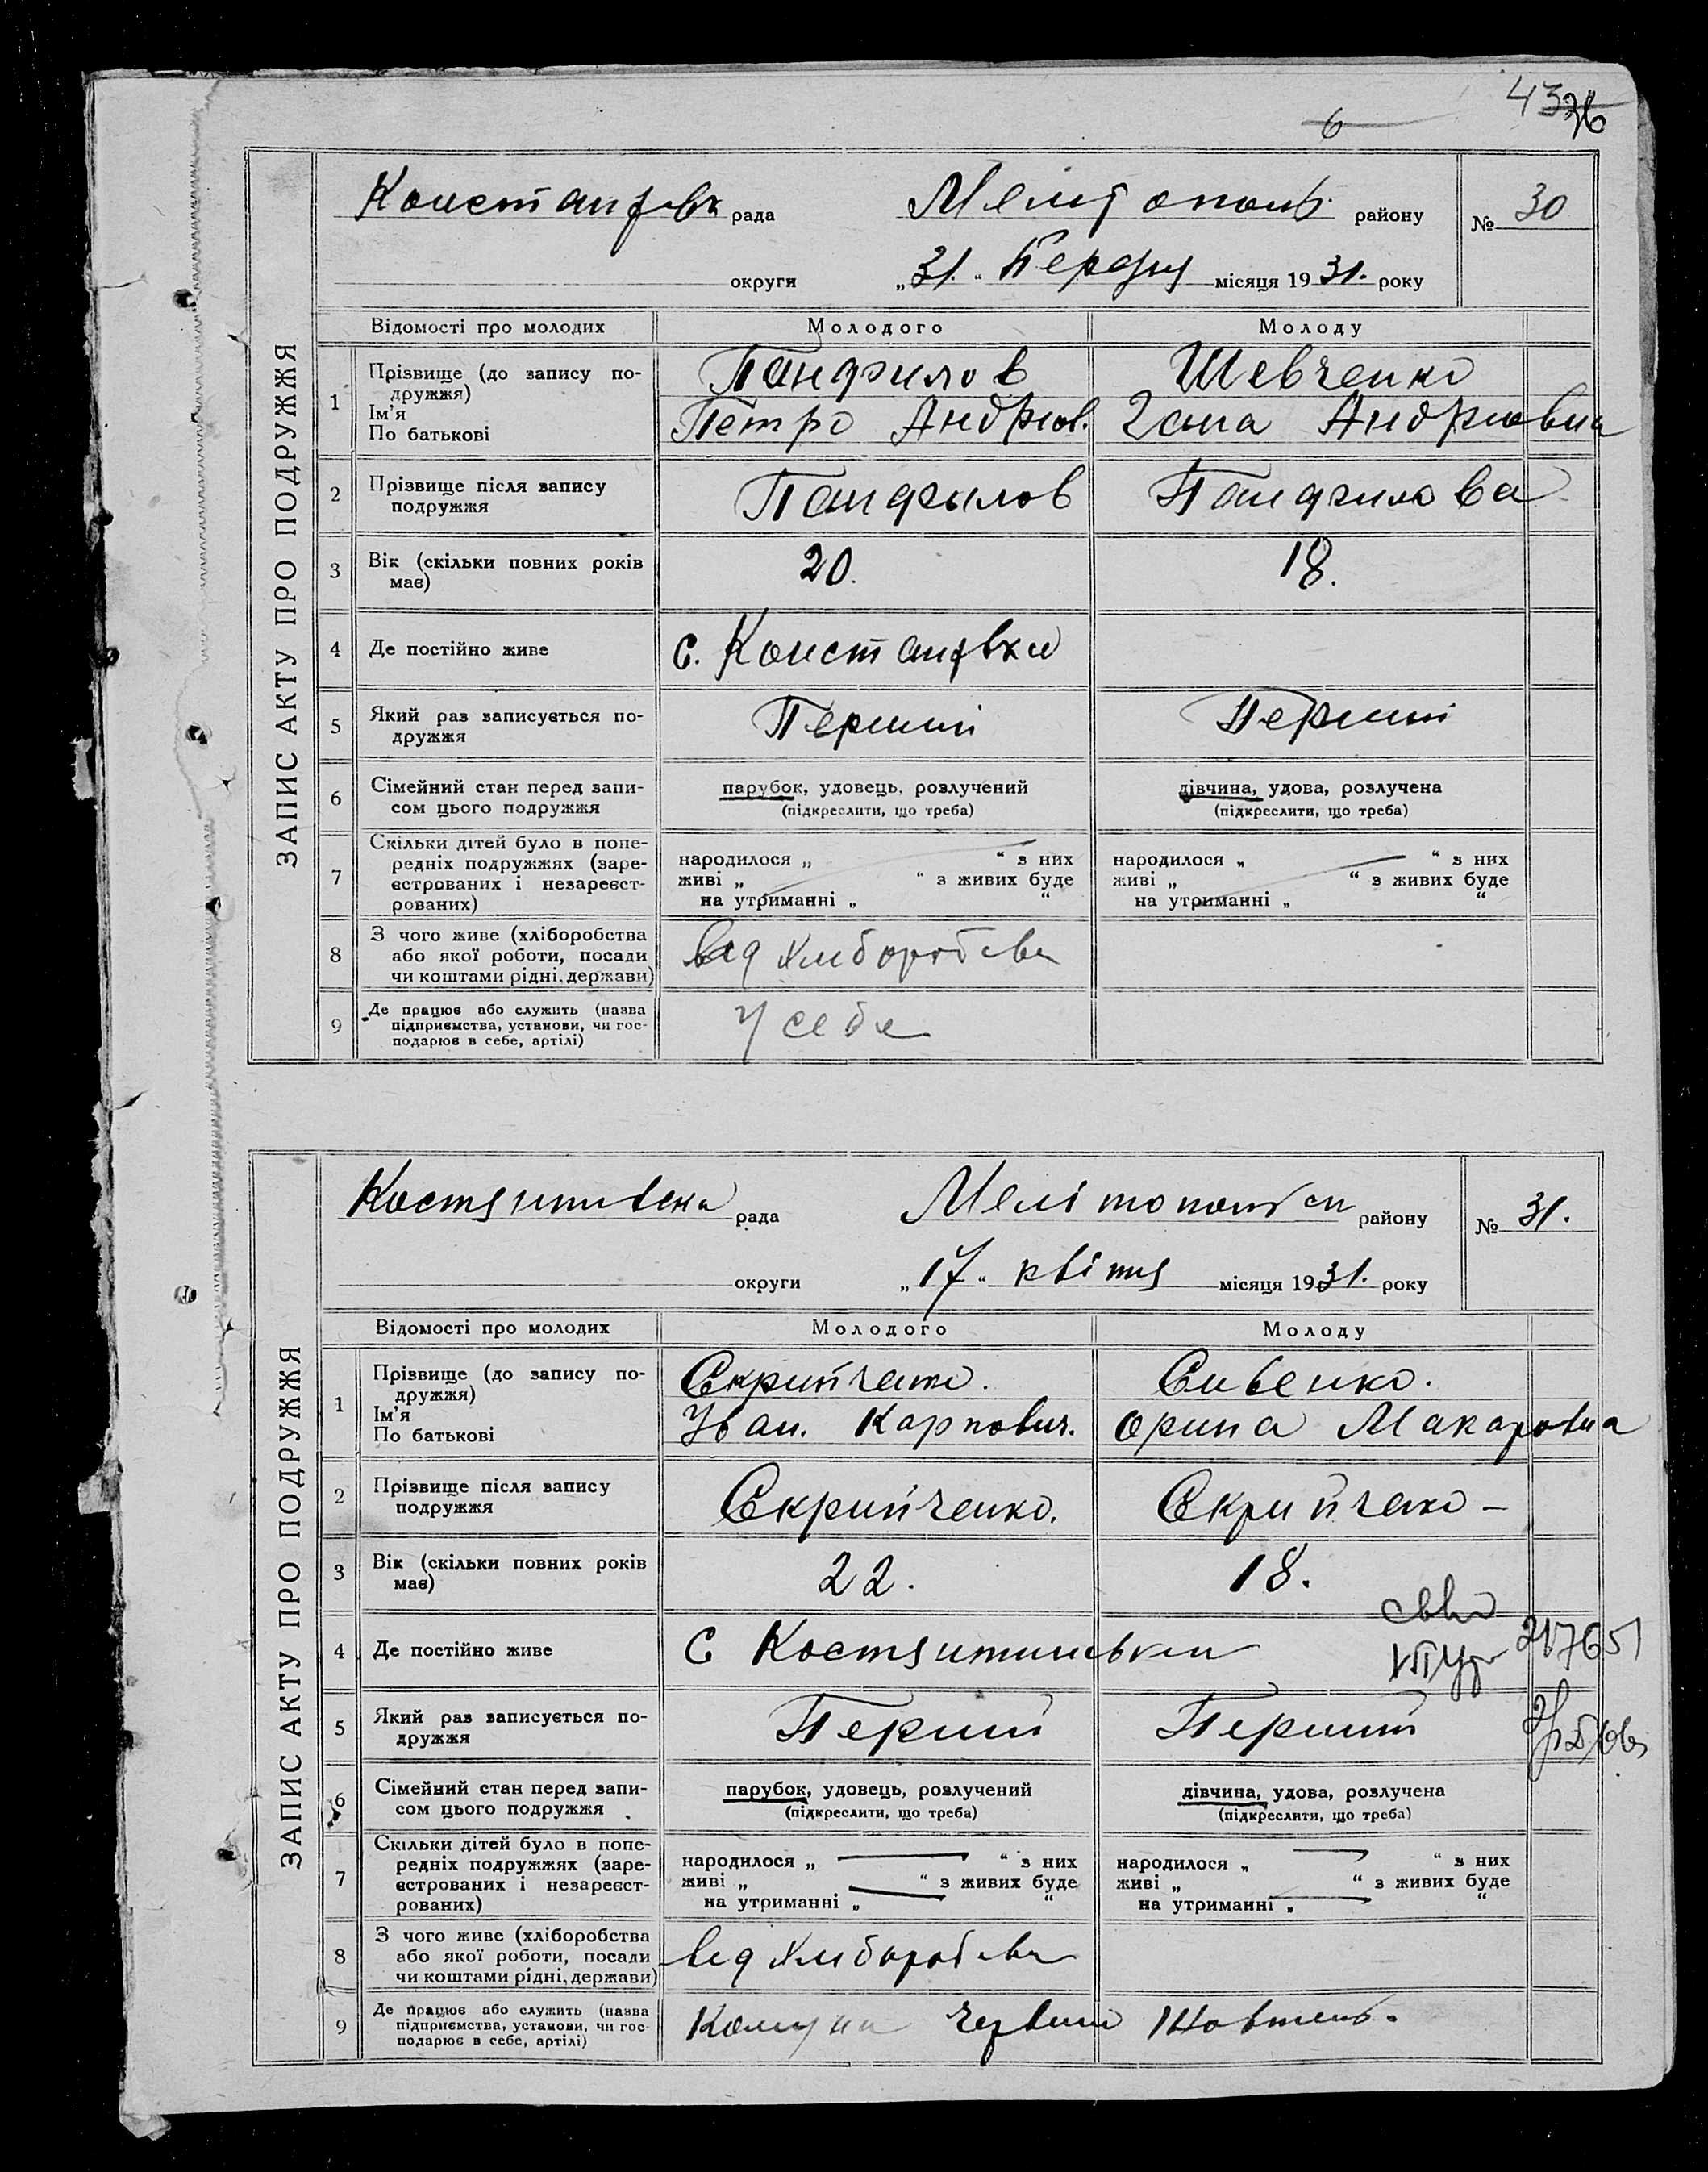 43 26
6
ЗАПИС АКТУ ПРО ПОДРУЖЖЯ
Констан рада району № 30
округи „31.“ Березня місяця 1931. року
Відомості про молодих Молодого Молоду
1 Прізвище (до запису по-
дружжя)
Ім’я
По батькові
Панфилов Шевченко
Петро Андріов. Андріовна
2 Прізвище після запису
подружжя
Панфылов Панфилова
3 Вік (скільки повних років
має)
20. 18.
4 Де постійно живе с.
5 Який раз записується по-
дружжя
Перший Перший
6 Сімейний стан перед запи-
сом цього подружжя
парубок, удовець, розлучений дівчина, удова, розлучена
(підкреслити, що треба) (підкреслити, що треба)
7 Скільки дітей було в попе-
редніх подружжях (заре-
єстрованих і незареєст-
рованих)
народилося „ “ з них народилося „ “ з них
живі „ “ з живих буде живі „ “ з живих буде
на утриманні „ “ на утриманні „ “
8 З чого живе (хліборобства
або якої роботи, посади
чи коштами рідні, держави)
від хліборобства
9 Де працює або служить (назва
підприємства, установи, чи гос-
подарює в себе, артілі)
У себе
ЗАПИС АКТУ ПРО ПОДРУЖЖЯ
рада району № 31.
округи „17“ квітня місяця 1931. року
Відомості про молодих Молодого Молоду
1 Прізвище (до запису по-
дружжя)
Ім’я
По батькові
Скрипченко. Сивенко.
Іван. Карпович. Орина Макаровна
2 Прізвище після запису
подружжя
Скрипченко. Скрипченко –
3 Вік (скільки повних років
має)
22. 18.
4 Де постійно живе С
217651
5 Який раз записується по-
дружжя
Перший Перший
6 Сімейний стан перед запи-
сом цього подружжя
парубок, удовець, розлучений дівчина, удова, розлучена
(підкреслити, що треба) (підкреслити, що треба)
7 Скільки дітей було в попе-
редніх подружжях (заре-
єстрованих і незареєст-
рованих)
народилося „ “ з них народилося „ “ з них
живі „ “ з живих буде живі „ “ з живих буде
на утриманні „ “ на утриманні „ “
8 З чого живе (хліборобства
або якої роботи, посади
чи коштами рідні, держави)
від хліборобства
9 Де працює або служить (назва
підприємства, установи, чи гос-
подарює в себе, артілі)
Комуна Жовтень.